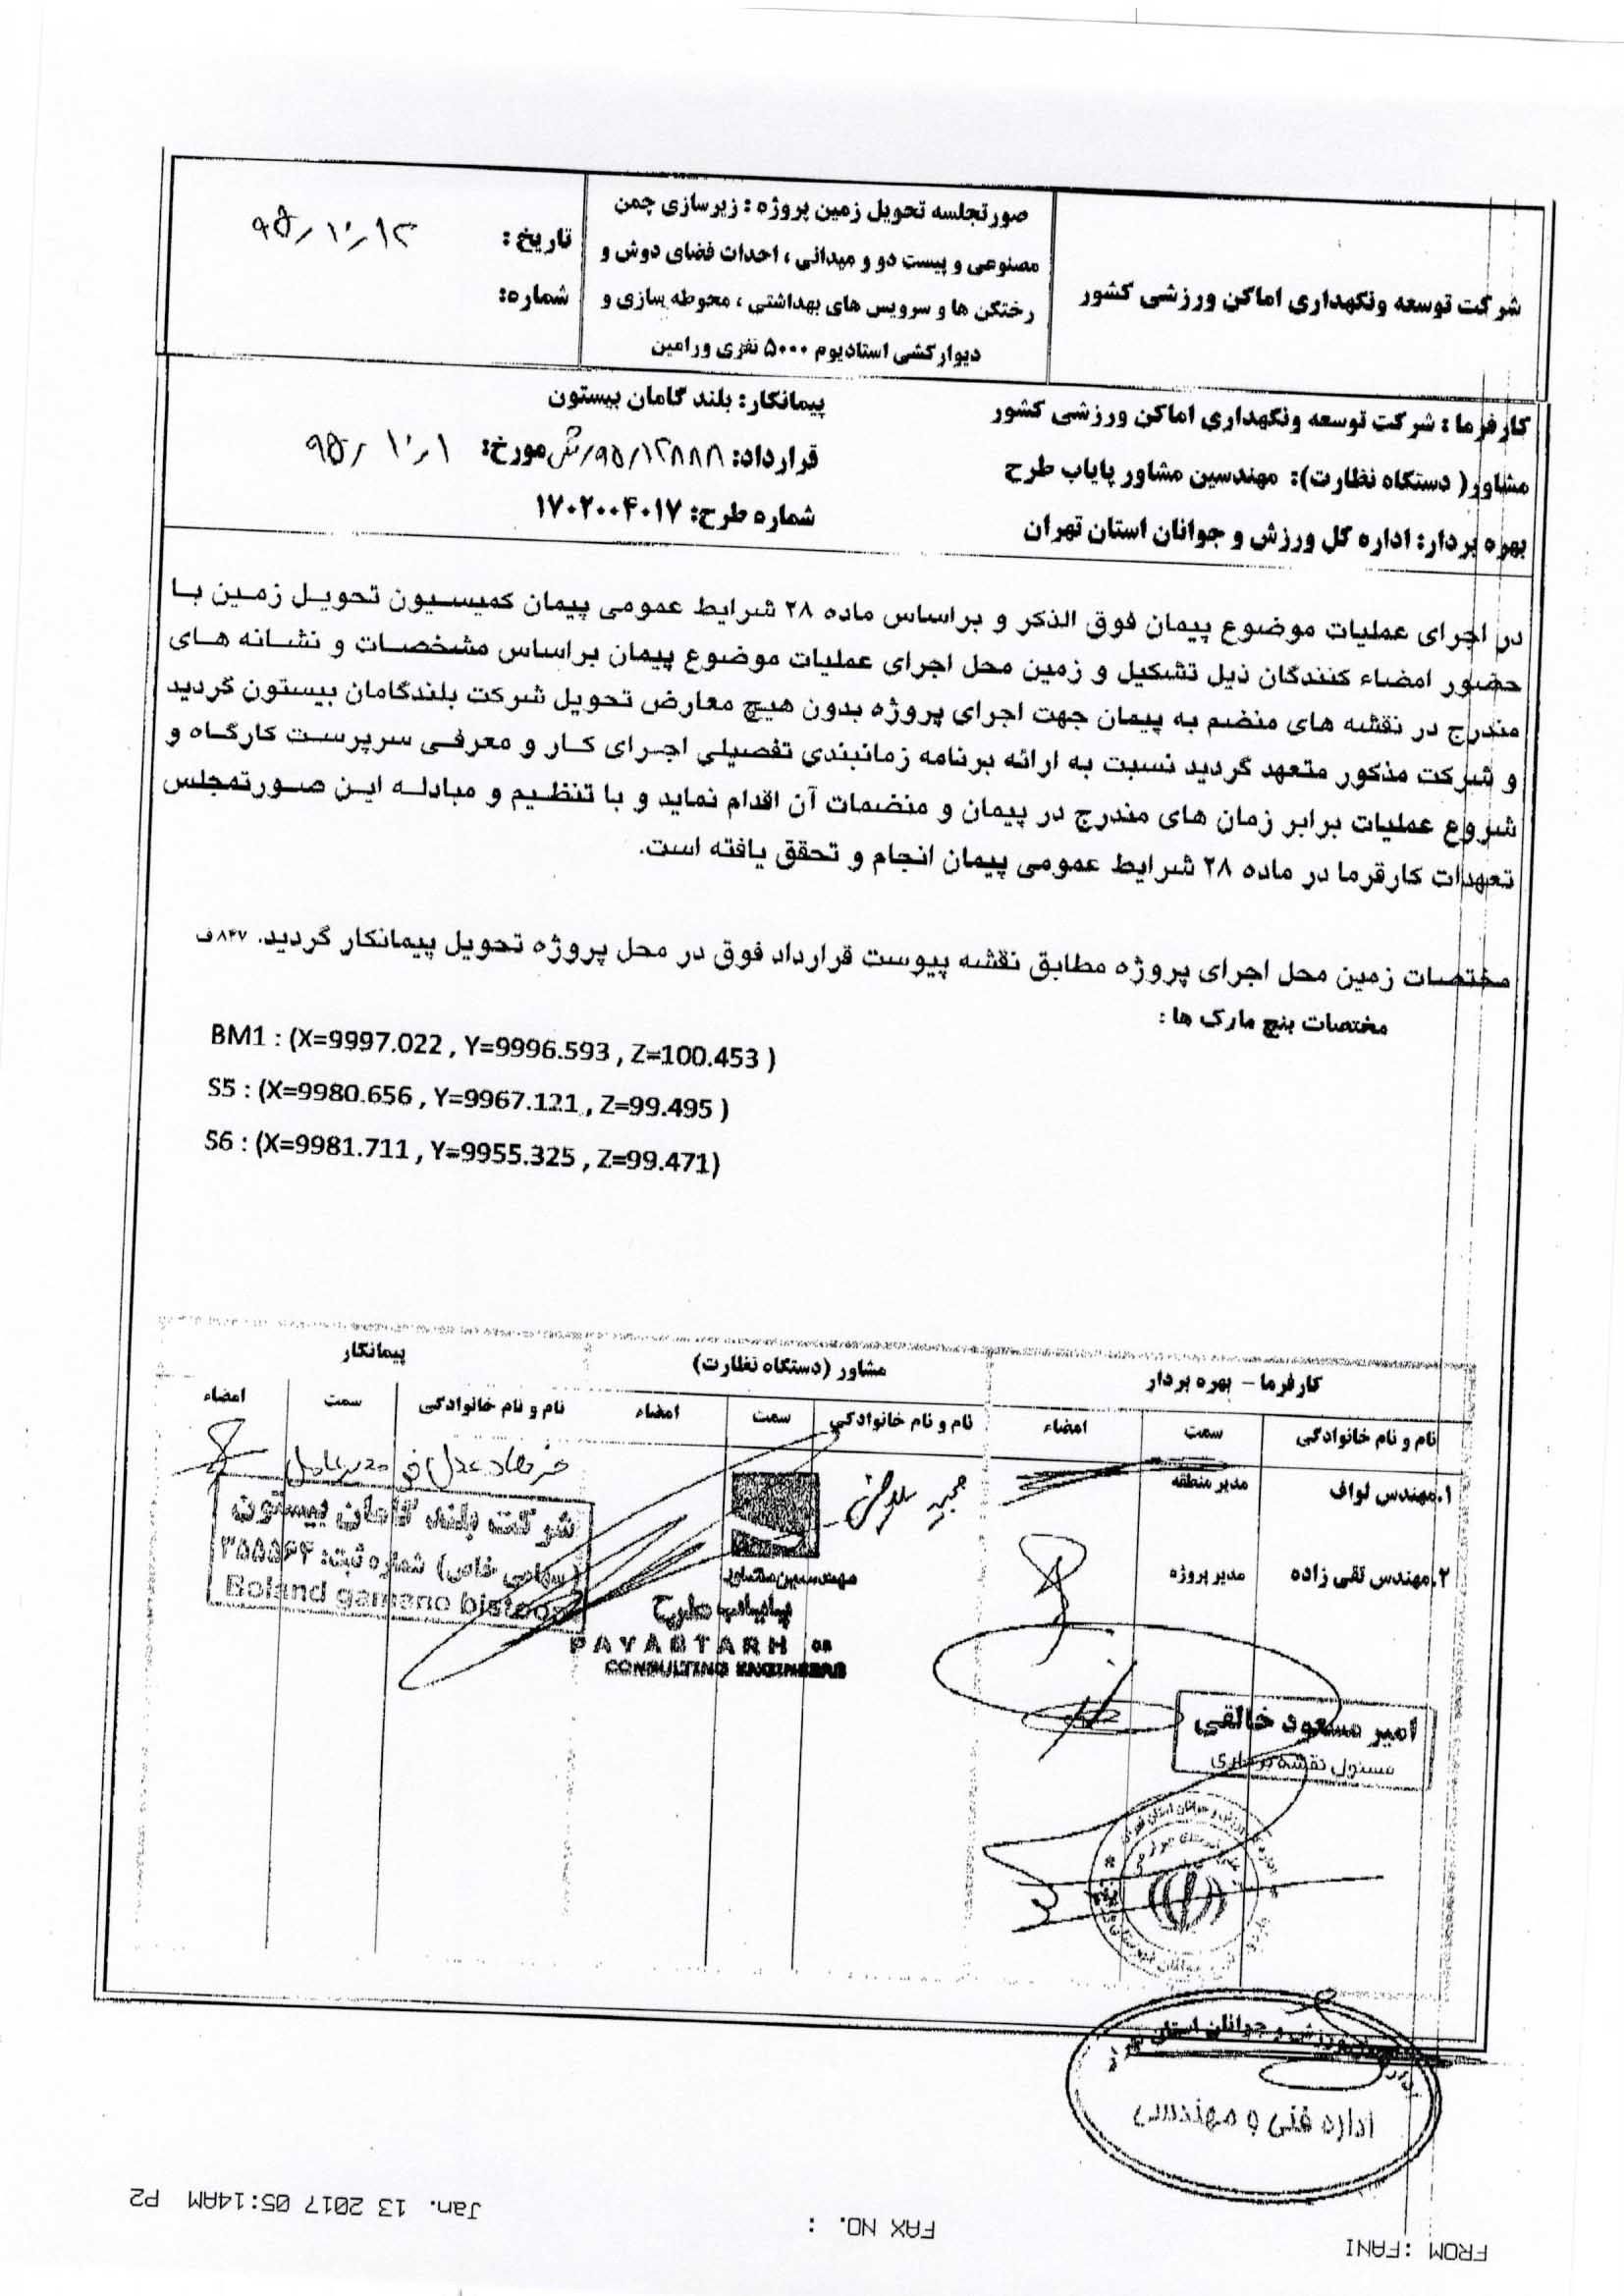 شرکت توسعه ونگهداری اماکن ورزشی کشور
صورتجلسه تحویل زمین پروژه : زیرسازی چمن
مصنوعی و پیست دو و میدانی ، احداث فضای دوش و
رختکن ها و سرویس های بهداشتی ، محوطه سازی و
دیوارکشی استادیوم ۵۰۰۰ نفری ورامین
تاریخ : ۹۵/۱۰/۱۳
شماره:
کارفرما : شرکت توسعه ونگهداری اماکن ورزشی کشور
پیمانکار: بلند گامان بیستون
مشاور( دستگاه نظارت): مهندسین مشاور پایاب طرح
قرارداد: ۹۵/۱۲۸۸۸/ش مورخ: ۹۵/۱۰/۱
بهره بردار: اداره کل ورزش و جوانان استان تهران
شماره طرح: ۱۷۰۲۰۰۴۰۱۷
در اجرای عملیات موضوع پیمان فوق الذکر و براساس ماده ۲۸ شرایط عمومی پیمان کمیسیون تحویل زمین با
حضور امضاء کنندگان ذیل تشکیل و زمین محل اجرای عملیات موضوع پیمان براساس مشخصات و نشانه های
مندرج در نقشه های منضم به پیمان جهت اجرای پروژه بدون هیچ معارض تحویل شرکت بلندگامان بیستون گردید
و شرکت مذکور متعهد گردید نسبت به ارائه برنامه زمانبندی تفصیلی اجرای کار و معرفی سرپرست کارگاه و
شروع عملیات برابر زمان های مندرج در پیمان و منضمات آن اقدام نماید و با تنظیم و مبادله این صورتمجلس
تعهدات کارفرما در ماده ۲۸ شرایط عمومی پیمان انجام و تحقق یافته است.
مختصات زمین محل اجرای پروژه مطابق نقشه پیوست قرارداد فوق در محل پروژه تحویل پیمانکار گردید. ۸۴۷ف
مختصات بنچ مارک ها :
BM1 : (X=9997.022 , Y=9996.593 , Z=100.453 )
S5 : (X=9980.656 , Y=9967.121 , Z=99.495 )
S6 : (X=9981.711 , Y=9955.325 , Z=99.471)
کارفرما – بهره بردار
مشاور (دستگاه نظارت)
پیمانکار
نام و نام خانوادگی سمت امضاء نام و نام خانوادگی سمت امضاء نام و نام خانوادگی سمت امضاء
۱.مهندس لواف مدیر منطقه
۲.مهندس تقی زاده مدیر پروژه
مدیرعامل
شرکت بلند گامان بیستون
(سهامی خاص) شماره ثبت: ۳۵۵۵۶۴
Boland gamano bistoon
مهندسین مشاور
پایاب طرح
PAYABTARH
CONSULTING ENGINEERS
امیر مسعود خالقی
مسئول نقشه برداری
ورزش و جوانان استان
اداره فنی و مهندسی
FROM : FANI FAX NO. : Jan. 13 2017 05:14AM P2